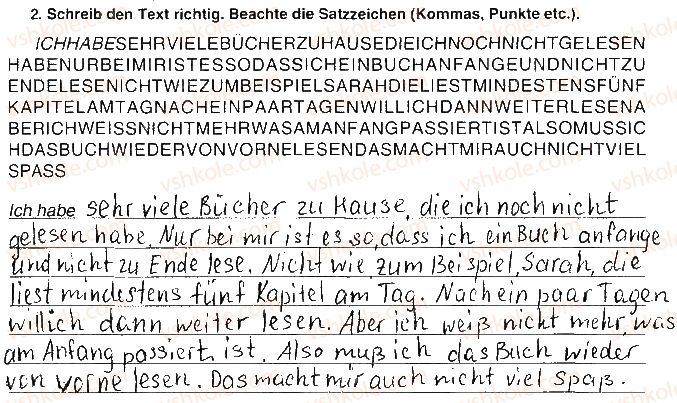 2. Schreib den Text richtig. Beachte die Satzzeichen (Kommas, Punkte etc.).
ICHHABESEHRVIELEBÜCHERZUHAUSEDIEICHNOCHNICHTGELESEN
HABENURBEIMIRISTESSODASSICHEINBUCHANFANGEUNDNICHTZU
ENDELESENICHTWIEZUMBEISPIELSARAHDIELIESTMINDESTENSFÜNF
KAPITELAMTAGNACHEINPAARTAGENWILLICHDANNWEITERLESENA
BERICHWEISSNICHTMEHRWASAMANFANGPASSIERTISTALSOMUSSIC
HDASBUCHWIEDERVONVORNELESENDASMACHTMIRAUCHNICHTVIEL
SPASS
Ich habe sehr viele Bücher zu Hause, die ich noch nicht
gelesen habe. Nur bei mir ist es so, dass ich ein Buch anfange
und nicht zu Ende lese. Nicht wie zum Beispiel, Sarah, die
liest mindestens fünf Kapitel am Tag. Nach ein paar Tagen
will ich dann weiter lesen. Aber ich weiß nicht mehr, was
am Anfang passiert ist. Also muß ich das Buch wieder
von vorne lesen. Das macht mir auch nicht viel Spaß.